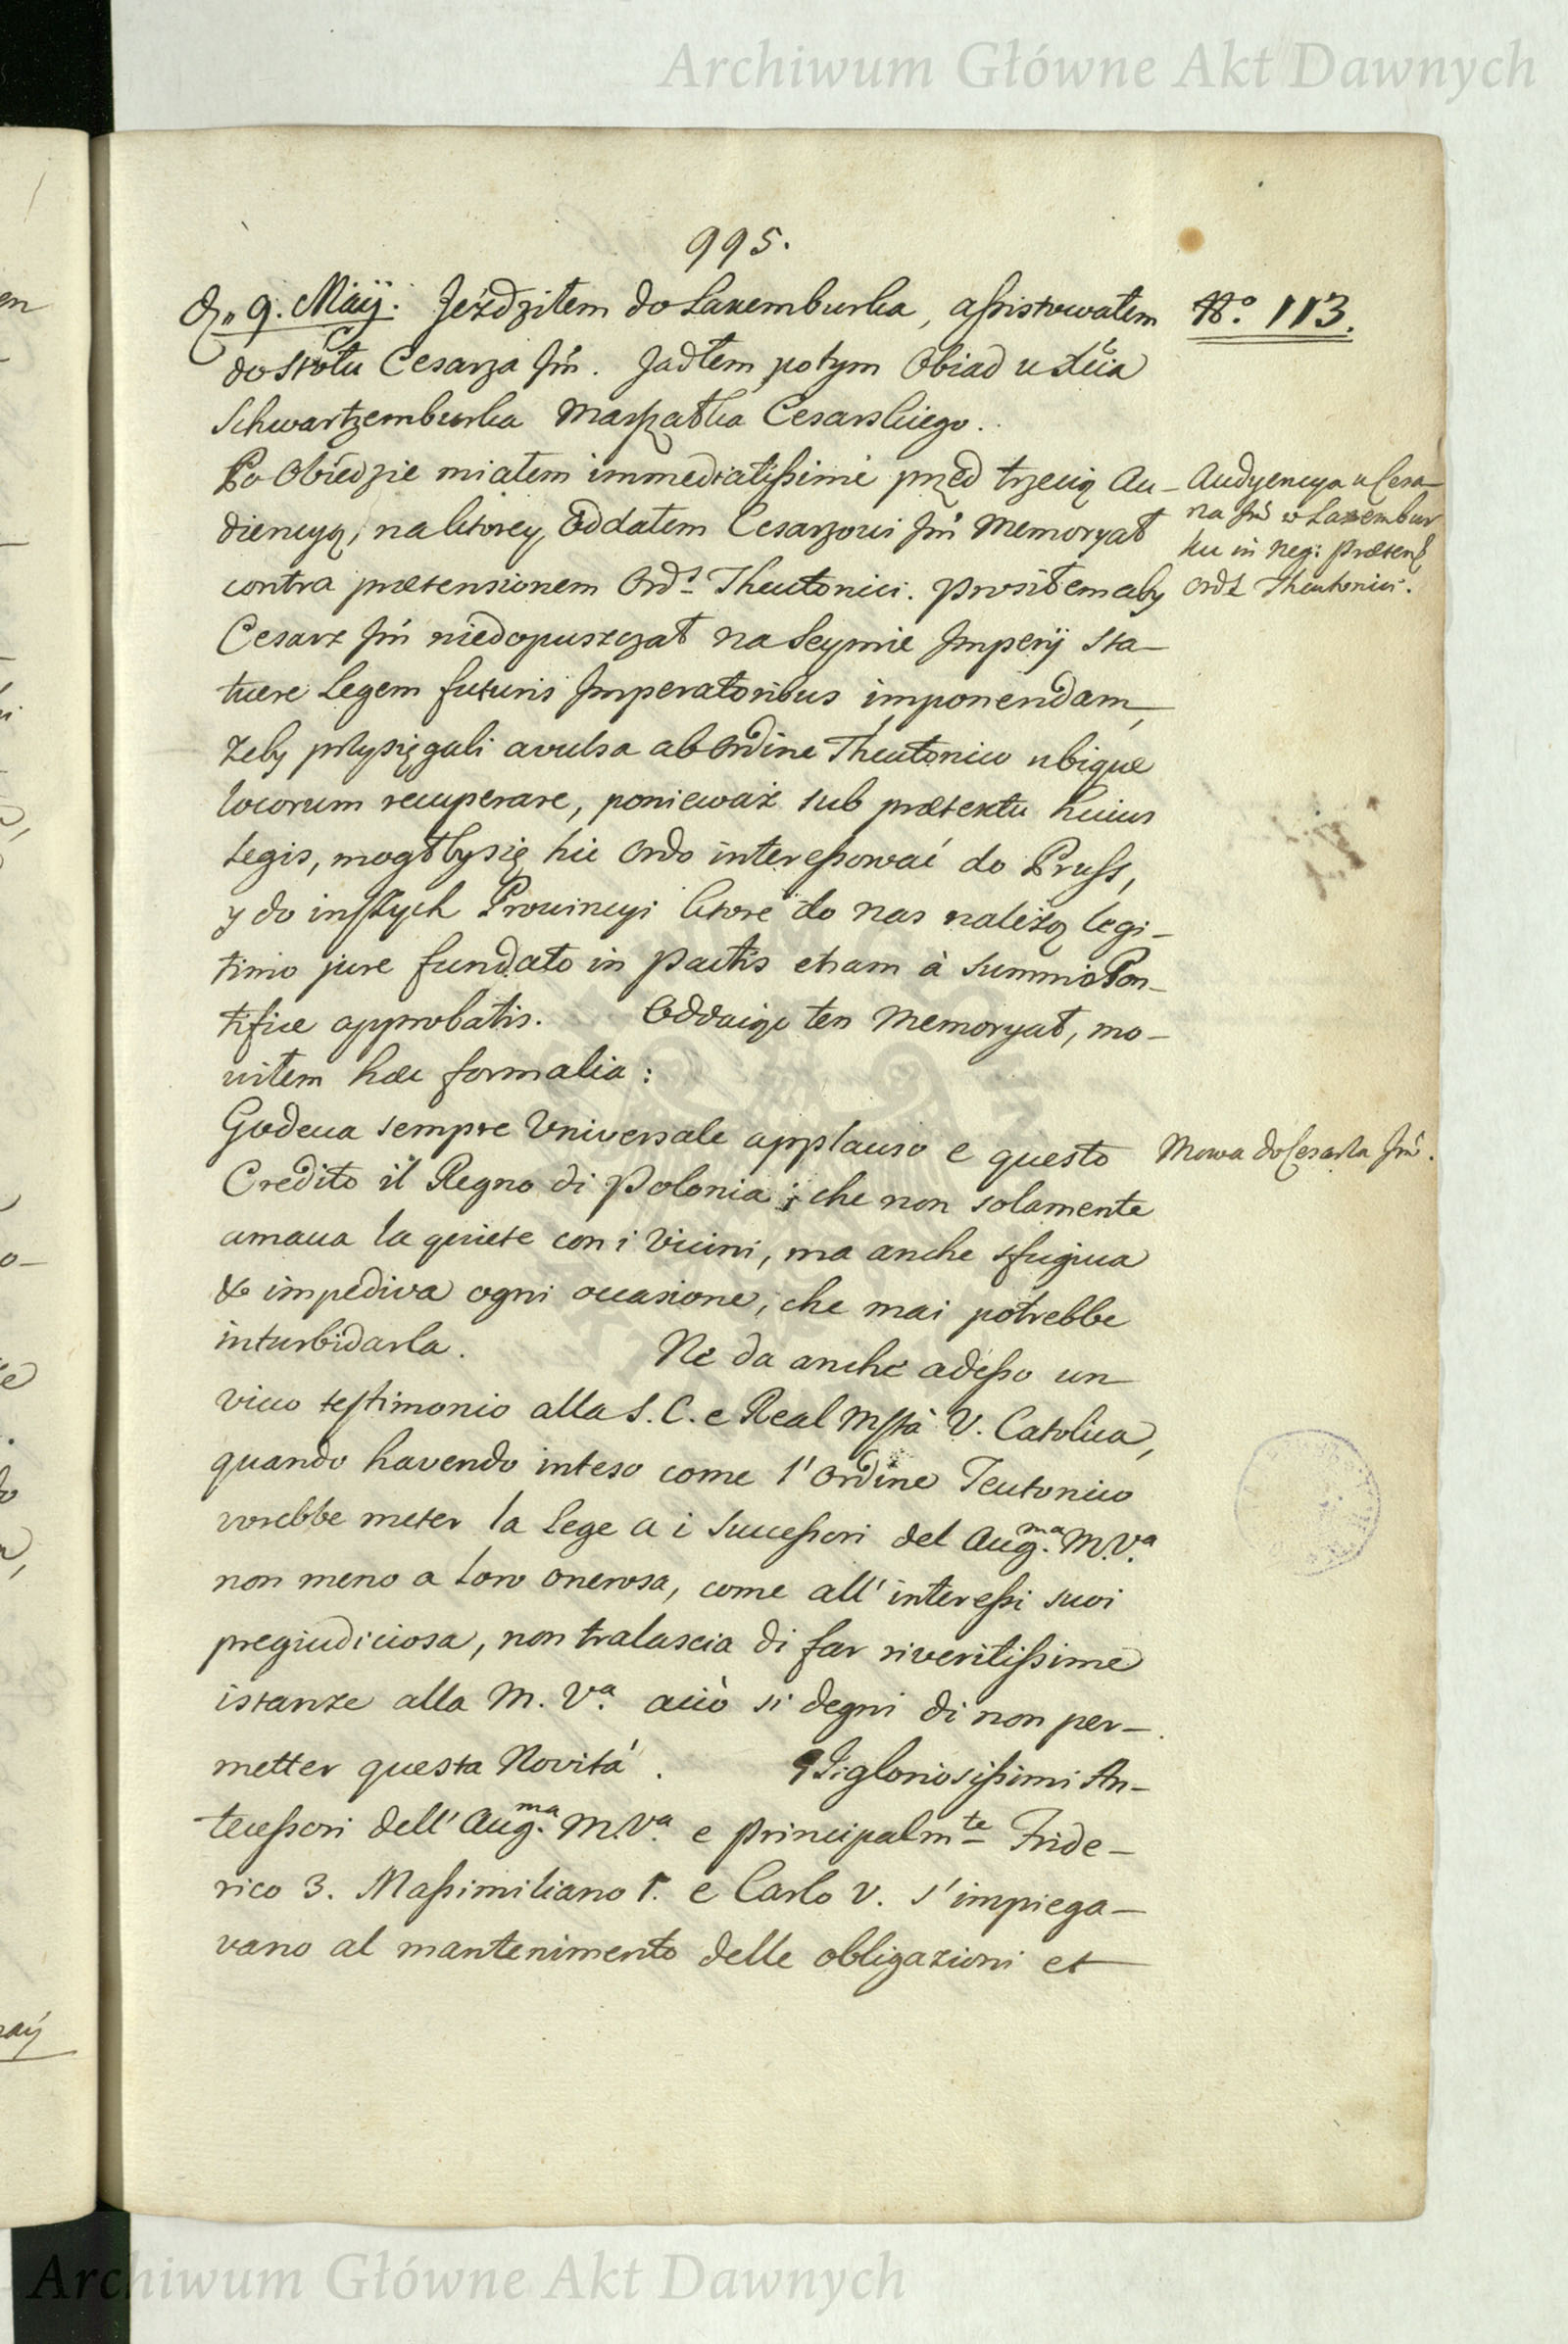 Archiwum Główne Akt Dawnych
995.
D„ 9. Maij. Jeźdźiłem do Laxemburka, assistowałem
do stołu Cesarza Jm̃. Jadłem potym Obiad u Xcia
Schwartzemburka Marszałka Cesarskiego.
Po Obiedzie miałem immediatissimé przed trzecią Au-
diencyą, na ktorey Oddałem Cesarzowi Jm̃ Memoryał
contra prætensionem Ord.s Theutonici. prosiłem aby
Cesarz Jm̃ niedopuszczał na Seymie Imperij Sta-
tuere Legem futuris Imperatoribus imponendam,
żeby przysięgali avulsa ab Ordine Theutonico ubique
locorum recuperare, ponieważ sub prætextu huius
Legis, mogłby się hic Ordo interessować do Pruss,
y do inszych Prowincyi ktore do nas należą legi-
timo jure fundato in Pactis etiam à Summo Pon-
tifice approbatis. Oddaiąc ten Memoryał, mo-
wiłem hæc formalia:
Godeua sempre Vniversale applauso e questo
Credito il Regno di Polonia; che non solamente
amaua la quiete con i Vicini, ma anche sfugiua
& impediva ogni occasione, che mai potrebbe
inturbidarla. Ne da anche adesso un
viuo testimonio alla S. C. e Real Mstà V. Catolica,
quando havendo inteso come l'Ordine Teutonico
vorebbe meter la Lege a i Successori del Aug.ma M. V.a
non meno a loro onerosa, come all'interessi suoi
pregiudiciosa, non tralascia di far riveritissime
istanze alla M. V.a acciò si degni di non per-
metter questa Novità. gli gloriosissimi An-
tecessori dell'Aug.ma M. V.a e principalm.te Fride-
rico 3. Massimiliano 1. e Carlo V. s'impiega-
vano al mantenimento delle obligazioni et
No. 113.
Audyencya u Cesa-
rza Jm̃ w Laxembur
ku in neg: Prætens
Ord.s Theutonici.
Mowa do Cesarza Jm̃.
Archiwum Główne Akt Dawnych